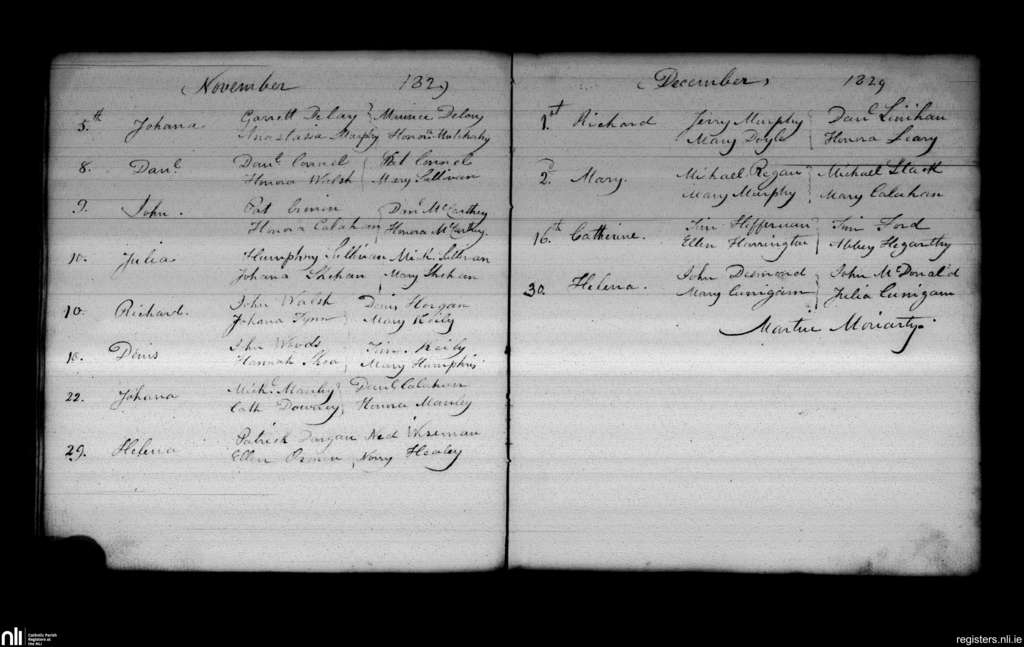 November 1829
5.th Johana Garrett Delany Maurice Delany
Anastasia Murphy Honora
8. Danl. Danl. Connel Pat Connels
Honora Walsh Mary Sullivan
9. John. Pat Cronin Danl McCarthy
Honora Calahan Honora McCarthy.
10. Julia Humphry Sullivan Mich. Sullivan
Johana Shehan Mary Shehan
10. Richard. John Walsh Denis Horgan
Johana Flynn Mary Keily
18. Denis John Woods Tim. Keily
Hannah Shea Mary Humphris
22. Johana Mich. Manley Danl Calahan
Cath Downey Honora Manley
29. Helena Patrick Dorgan Ned Wiseman
Ellen Cronin Norry Healey
December 1829
1.st Richard Jerry Murphy Danl Linihan
Mary Doyle Honora Leary
2. Mary. Michael Regan Michael Stack
Mary Murphy Mary Calahan
16.th Catherine. Tim Hefferman Tim Ford
Ellen Harrington Abbey Hegarthy
30. Helena. John Desmond John McDonald
Mary Cunigam Julia Cunigam
Martin Moriarty.
nli Catholic Parish
Registers at
the NLI
registers.nli.ie